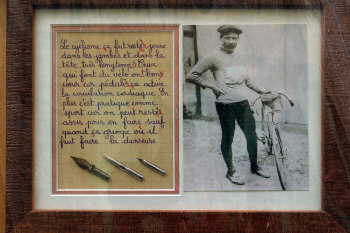 Le cyclisme ça fait resté jeune
dans les jambes et dans la
tête très longtemps. Ceux
qui font du vélo ont bon
cœur car pédaler ça active
la circulation cardiaque. En
plus c'est pratique comme
sport car on peut resté
assis pour en faire sauf
quand ça grimpe où il
faut faire la danseuse